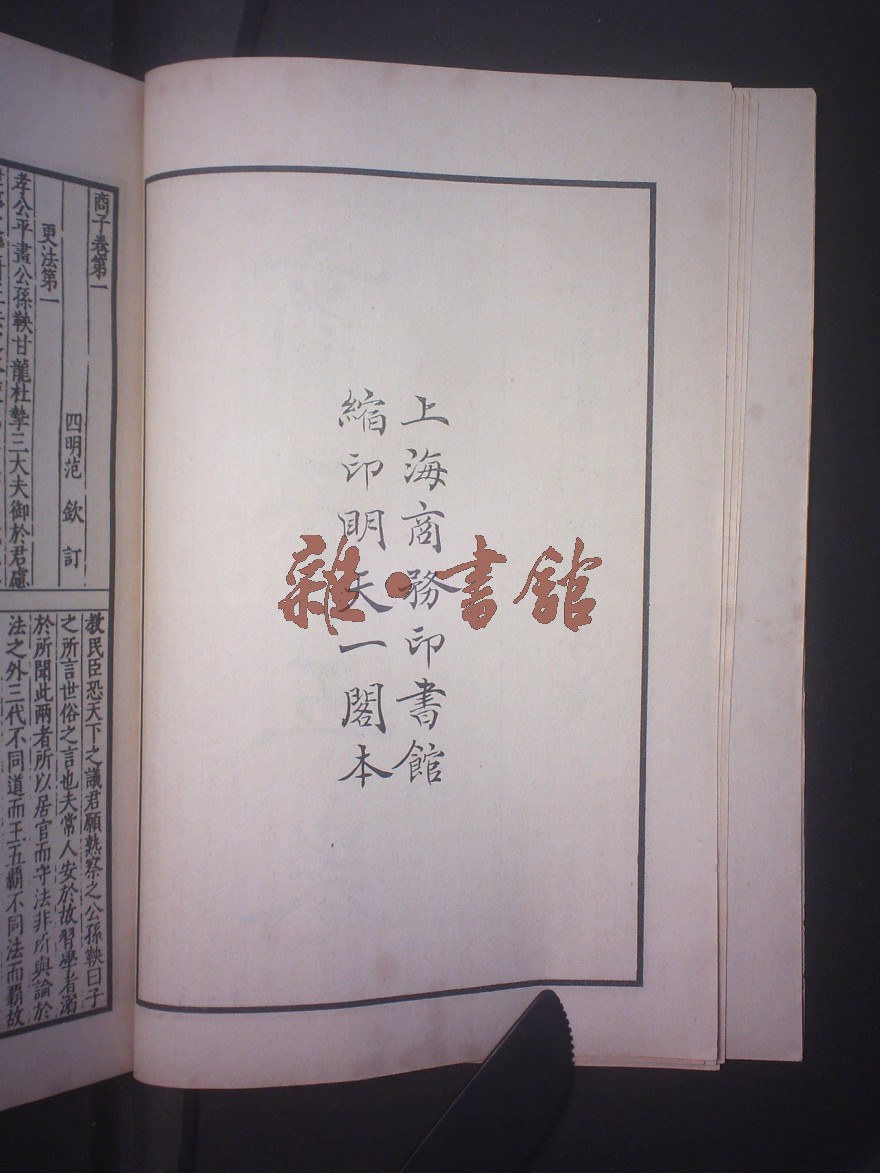 上海商務印書館
縮印明天一閣本
雜·書館
商子卷第一
四明范欽訂
更法第一
孝公平畫公孫鞅甘龍杜摯三大夫御於君慮
教民臣恐天下之議君願熟察之公孫鞅曰子
之所言世俗之言也夫常人安於故習學者溺
於所聞此兩者所以居官而守法非所與論於
法之外三代不同道而王五霸不同法而霸故